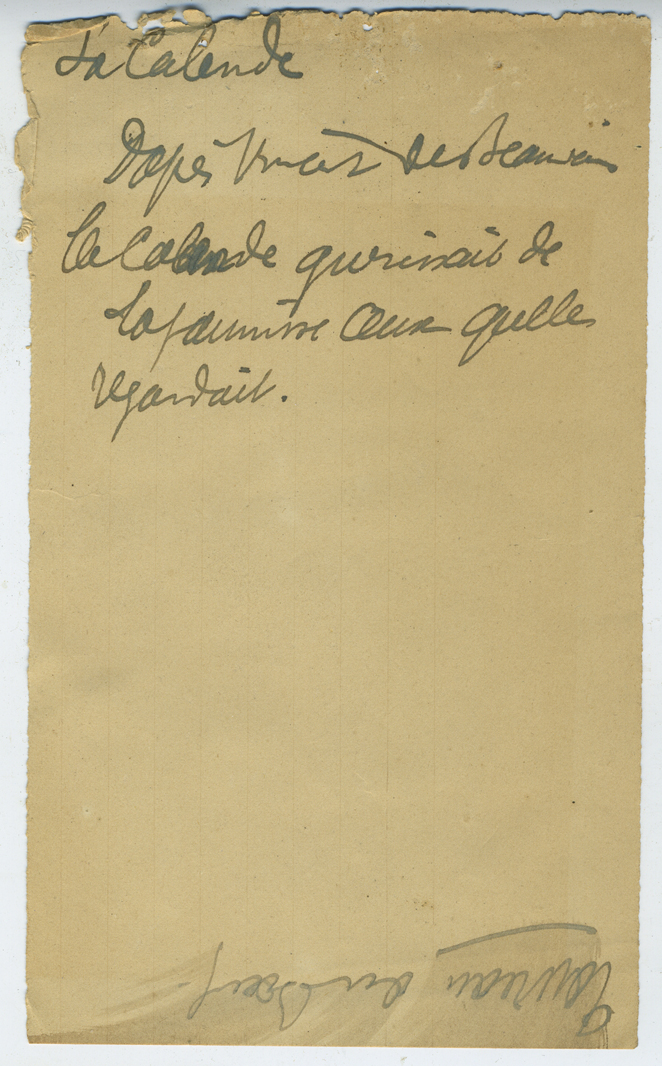 La Calende
D'apès Vincent de Beauvais
la Calende guerissait de
la jaunisse ceux qu'elle
regardait.
Taureau ou Boeuf